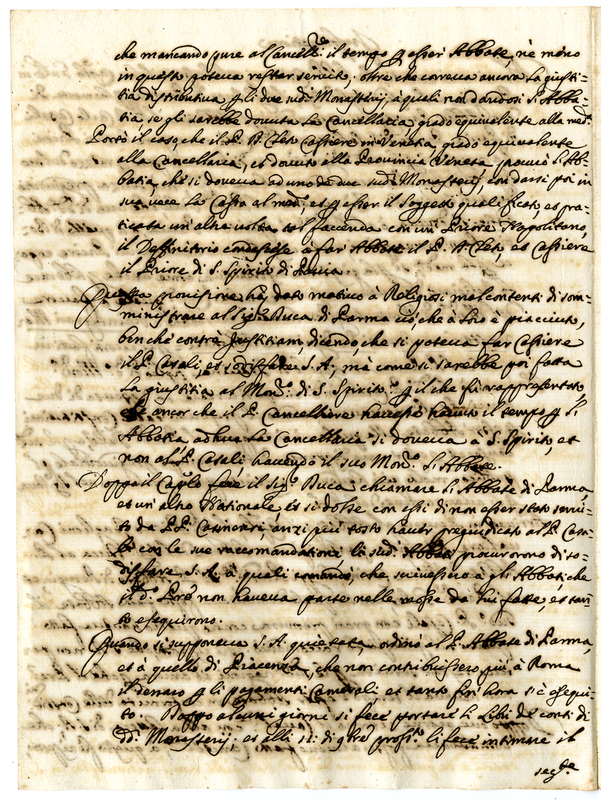 che mancando pure al Cancell.re il tempo p esser Abbate, nè meno
in questo poteva restar servito, oltre che correva ancora la giusti=
tia distributiva p gli due sud.i Monasterij, à quali non dandosi l'Abba=
tia se gli sarebbe dovuta la Cancellaria, grado equivalente alla med.
Portò il caso, che il P. Cassiere in Venetia, grado equivalente
alla Cancellaria, et dovuto alla Provincia Veneta l'Ab=
batia, che si doveva ad uno de due sud.i Monasterij, con darsi poi in
sua vece la Cassa al med.o, et p esser il soggetto qualificato, et pra=
ticata un'altra volta tal facenda con un Priore Napolitano,
il Deffinitorio condescese à far Abbate il P. et Cassiere
il Priore di S. Spirito di Pavia.
Questa provisione hà dato motivo à Religiosi malcontenti di som=
ministrare al Sig.r Duca di Parma ciò, che à loro è piacciuto,
benche contra Justitiam, dicendo, che si poteva far Cassiere
il P. Casali, et sodisfare S. A., mà come si sarebbe poi fatta
la giustitia al Mon.ro di S. Spirito, p il che fù rappresentato
che ancor che il P. Cancelliere havesse havuto il tempo p l'
Abbatia adhuc la Cancellaria si doveva à S. Spirito, et
non al P. Casali havendo il suo Mon.ro l'Abbate.
Doppo il Cap.lo fece il Sig.r Duca chiamare l'Abbate di Parma,
et un'altro Nationale, et si dolse con essi di non esser stato servi=
to da P.P. anzi più tosto haver pregiudicato al P. Casa=
li con le sue raccomandationi, li sud.i Abbati procurorono di so=
disfare S. A. à quali comandò che scrivessero à gli Abbati, che
il d.o P.re non haveva parte nelle mosse da lui fatte, et tan=
to esequirono.
Quando si supponeva S. A. quietata, ordinò al P. Abbate di Parma,
et à quello di Piacenza, che non contribuissero più à Roma
il denaro p gli pagamenti Camerali et tanto fin hora si è esequi=
to. Doppo alcuni giorni si fece portare li Libri de conti di
dd.i Monasterij, et alli di li fece intimare il